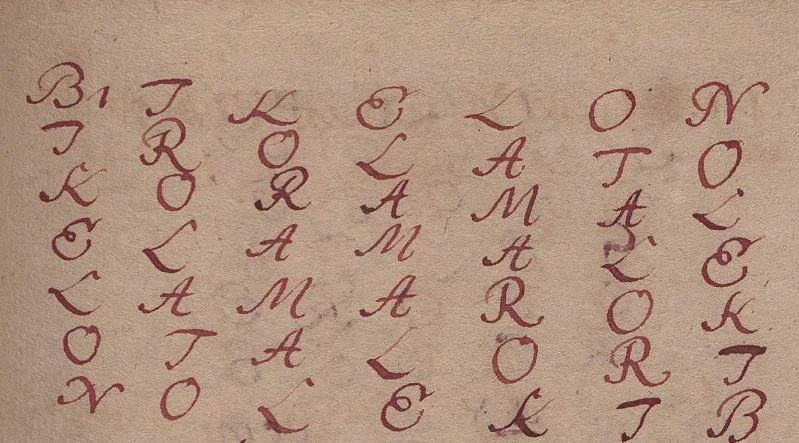 Bi T K E L O N
T R O L A T O
K O R A M A L
E L A M A L E
L A M A R O K
O T A L O R T
N O L E K T B